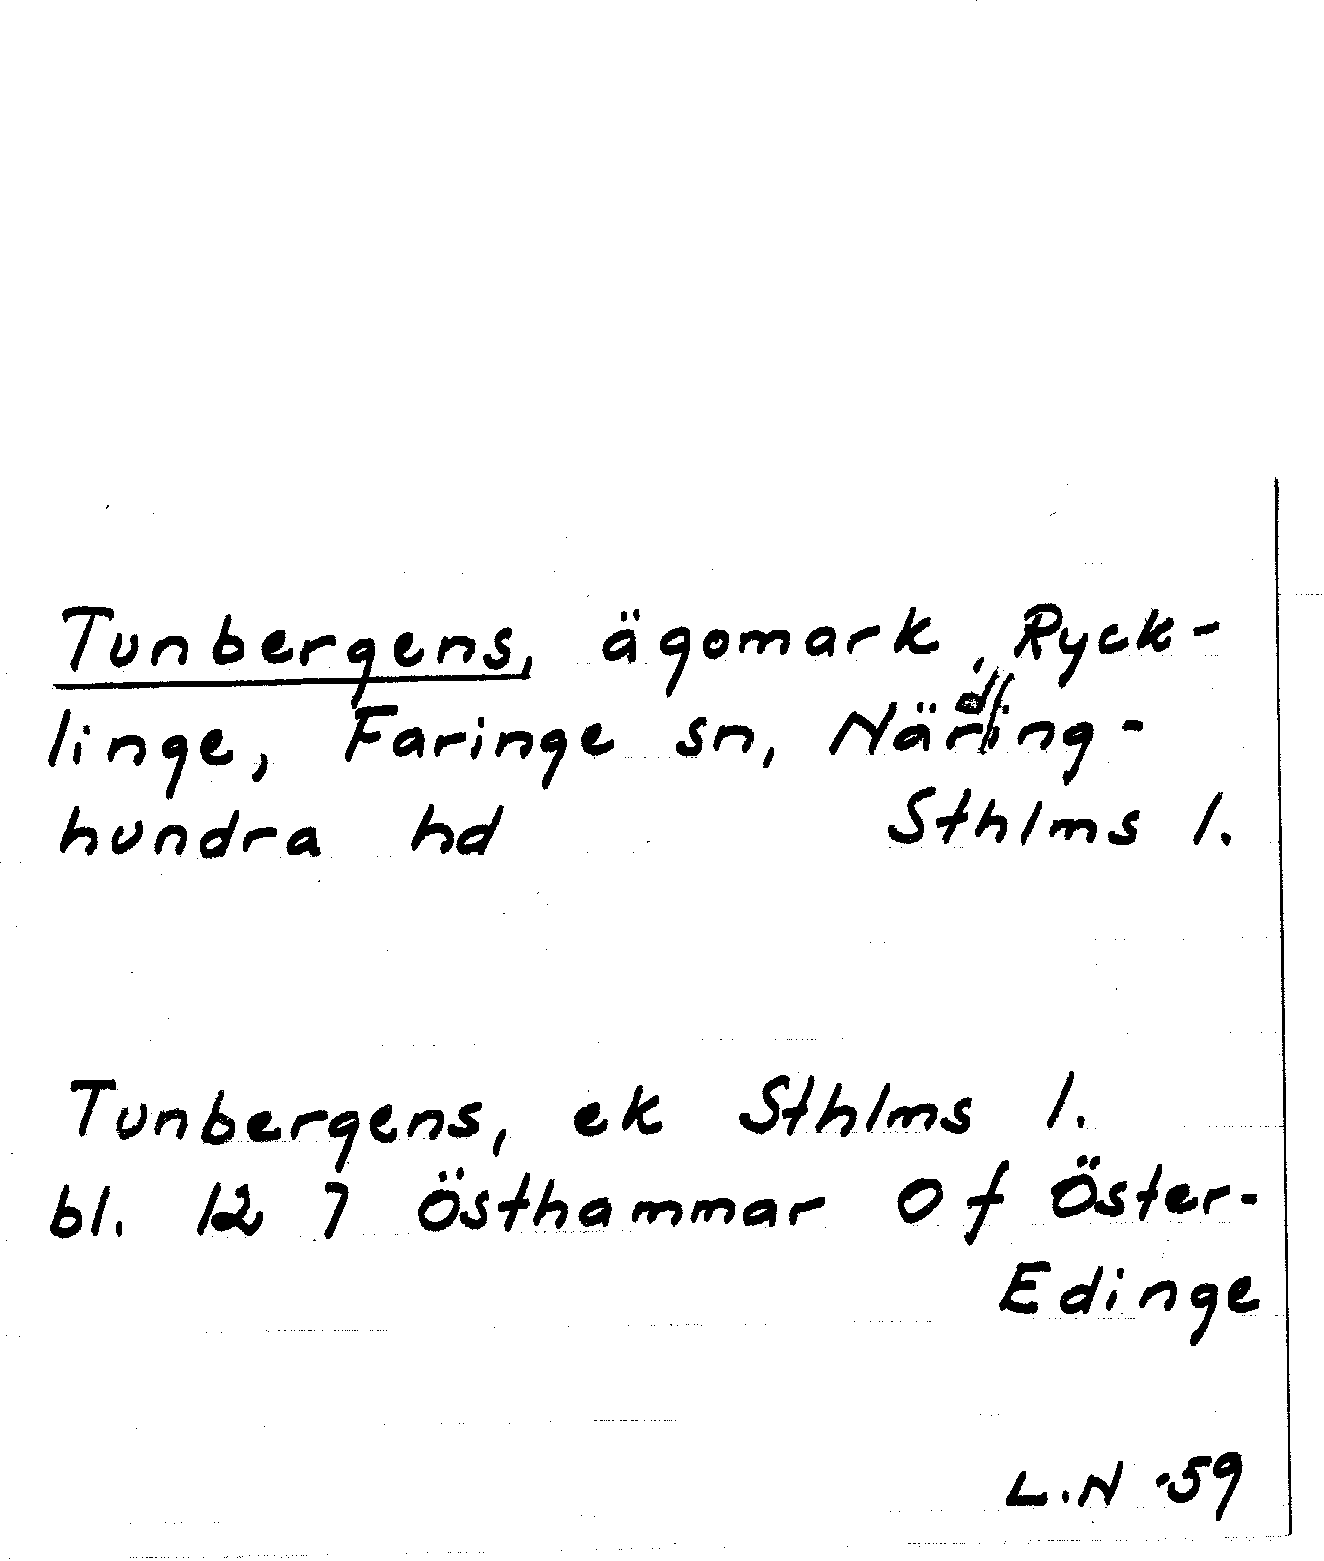 Tunbergens, ägomark, Ryck-
linge, Faringe sn, Närding-
hundra hd Sthlms l.
Tunbergens, ek Sthlms l.
bl. 12 7 Östhammar Of Öster-
Edinge
L.N -59